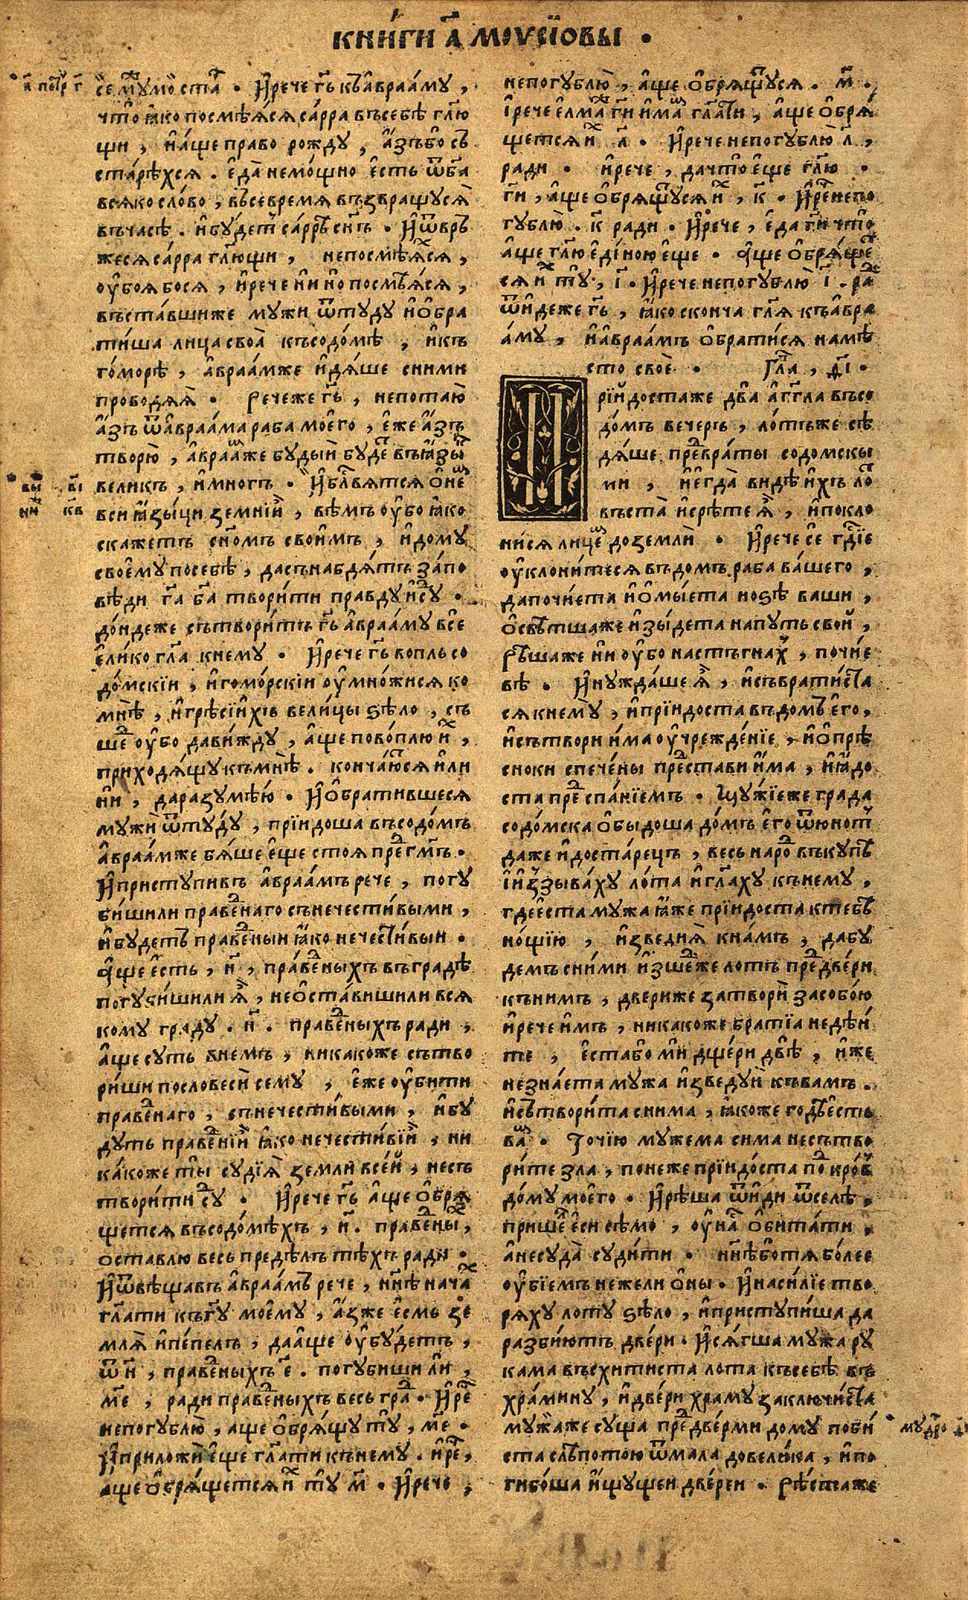 КНИ́ГИ А҃ МОѴСЇѠВЫ ·
И҆рече гь҃ къа҆враа́му,
что ꙗ҆ко посмѣѧ́сѧ са́рра въсебѣ гл҃ю
щи, и҆а҆ще право рожду, а҆́зъбо съ
ста́рѣхсѧ. е҆да̀ немо́щно е҆сть ѿб҃а
всѧко сло́во, въсевремѧ възвращусѧ
въчасѣ. и҆бу́детъ са́ррѣ сн҃ъ · И҆ѿвръ
жесѧ са́рра гл҃ющи, непосмѣѧ́хсѧ,
оу҆боѧбосѧ, и҆рече и҆и нѝ но посмѣѧсѧ,
въставшиже мужи ѿту́ду и҆ѡ҆бра
ти́ша лица своѧ̀ късодо́мѣ, и҆къ
го́морѣ, а҆враа́мже и҆дѧ́ше сними
прово́дѧѧ̀ · Речеже гь҃, непотаю̀
а҆́зъ ѿа҆враа́ма раба мое́го, е҆́же а҆́зъ
творю̀, а҆враа́мже буды́и бу́де въꙗ҆зы́
великъ, и҆многъ · И҆бл҃вѧтсѧ ѡ҆не́
вси ꙗ҆зы́ци земнїи, вѣмъ оу҆бо ꙗ҆ко
скажетъ сн҃омъ свои́мъ, и҆дому
своему посебѣ, дасънабдѧ́тъ за́по
вѣди га҃ ба҃ твори́ти правду и҆су́ ·
до́ндеже сътвори́тъ гь҃ а҆враа́му все
е҆ли́ко гл҃а кнему · И҆рече гь҃ вопль со
до́мскїи, и҆гомо́рскїи оу҆мно́жисѧ ко
мнѣ, и҆грѣси и҆́хъ вели́цы ѕѣло, съ
ше́ оу҆бо да ви́жду, а҆ще пово́плю и҆́,
приходѧ́щу къмнѣ. конча́ютсѧ и҆ли
ни, да разумѣ́ю · И҆ѡ҆братившесѧ
мужи ѿту́ду, прїидоша въсодо́мъ
а҆враа́мже бѧ́ше е҆ще стоѧ пре́ гм҃ъ.
И҆приступивъ а҆враа́мъ рече, погу
би́шили праве́наго сънечести́выми,
и҆будетъ праве́ныи ꙗ҆ко нечести́выи ·
А҆ще е҆́сть, н҃, пра́ведныхъ въгра́дѣ
погуби́шили ѧ҆̀, неѡ҆ста́вишили всѧ
кому гра́ду. н҃. праве́ныхъ ради,
а҆ще суть внемъ, никакоже сътво
ри́ши пословеси сему, е҆́же оу҆бити
праве́наго, сънечести́выми, и҆бу
дутъ праве́нїи ꙗ҆ко нечести́вїи, ни
ка́коже ты́ судїѧ̀ земли все́й, несъ
твори́ти су́ · И҆рече гь҃ а҆́ще ѡ҆брѧ́
щетсѧ въсодо́мѣхъ, н҃. праве́ны,
ѡставлю весь предѣлъ тѣхъ ради ·
И҆ѿвѣщавъ а҆враа́мъ рече, нн҃ѣ нача́
гл҃ати къгу҃ моему, а҆́зже е҆смь зе
млѧ̀ и҆пе́пелъ, даа҆ще оу҆бу́детъ,
ѿ н҃, праве́ныхъ е҃. погубиши ли,
ме҃, ради праве́ныхъ весь гра́ · И҆ре́
непогублю̀, аще ѡ҆брѧ́щу ту́, ме҃ ·
И҆приложѝ е҆ще гл҃ати кънему. и҆ре́,
аще ѡбрѧ́щетсѧ и҆́ ту м҃ · И҆рече,
непогублю̀, а҆́ще ѡ҆брѧ́щусѧ · м҃ ·
І҆рече е҆лма́ ги҃ и҆ма́ гл҃ати, а҆ще ѡ҆брѧ́
щетсѧ и҆́ л҃ · И҆рече непогублю̀ л҃,
ради · и҆рече, дачто̀ е҆ще гл҃ю ·
ги҃, а҆ще ѡ҆брѧ́щусѧ и҆́, к҃ · И҆ре́ непо
гублю. к҃ ради · И҆рече, е҆да ги҃ что̀
а҆ще гл҃ю е҆ди́ною е҆ще · А҆ще ѡ҆брѧ́ще
сѧ и҆́ ту́, і҃ · И҆рече непогублю̀ і҃. ра́
ѿи́деже гь҃, ꙗ҆ко сконча гл҃ѧ къа҆вра
аму, и҆а҆враа́мъ ѡ҆брати́сѧ намѣ
сто своѐ · Гла́, ѳ҃і ·
Прїи́достаже два̀ а҆́гг҃ла въсо
до́мъ вечеръ, ло́тъже сѣ
дѧ́ше превраты содомскы
ми, и҆егда̀ видѣ и҆́хъ ло́
въста и҆срѣ́те ѧ҆̀, и҆покло
ни́сѧ лице́ до землѝ · И҆рече се гд҃їе
оу҆клони́тесѧ въдомъ раба ва́шего,
дапочи́ета и҆ѡ҆мы́ета но́ѕѣ ваши,
ѡ҆свѣтшаже и҆зы́дета напуть свои́,
Рѣшаже нѝ оу҆бо настъгна́х, почїе
вѣ · И҆нужда́ше ѧ҆̀, и҆съвратиста
сѧ кнему̀, и҆прїидоста въдомъ е҆го,
и҆сътвори и҆́ма оу҆чрежде́нїе, и҆ѡ҆прѣ
сноки спече́ны пре́стави и҆́ма, и҆ꙗдо
ста пре́ спа́нїемъ · Мужїеже града
содо́мска ѡ҆быдоша до́мъ е҆го ѿю́нот
даже и҆доста́рецъ, весь наро́ въкупѣ
і҆и҆ззыва́ху ло́та и҆гл҃аху кънему,
гдеѐста мужа ꙗ҆́же прїидоста ктебѣ
нощїю, и҆зведи ѧ҆̀ кна́мъ, дабу
демъ сни́ми и҆зше́же лотъ пре́двери
къни́мъ, двериже затворѝ за собо́ю
и҆рече и҆мъ, никакоже бра́тїа недѣи
те, е҆стабо̀ мѝ дще́ри двѣ, и҆́же
незна́ета мужа и҆зведу̀и квамъ.
и҆сътвори́та снима, ꙗ҆коже годѣ е҆сть
ва́ · То́чїю мужема сима несътво
ри́те зла, поне́же прїидо́ста по́ кро́в
до́му моего · И҆рѣша ѿи́ди ѿселѣ.
прише́ е҆си сѣмо, оу҆на́ ѡ҆бита́ти
а҆несу́да суди́ти · нн҃ѣботѧ бо́лее
оу҆бїемъ нежели ѡ҆ны · И҆наси́лїе тво
рѧху лоту ѕѣло, и҆приступи́ша да
разбию́тъ двери · И҆сѧ́гша мужа ру
кама въсхитиста лота ксебѣ въ
хра́мину, и҆две́ри храму заключи́ста
мужаже суща пре́дверми дому поби
ста слѣпотою ѿмала довели́ка, и҆по
гибо́ша и҆щущеи две́реи · Рѣстаже